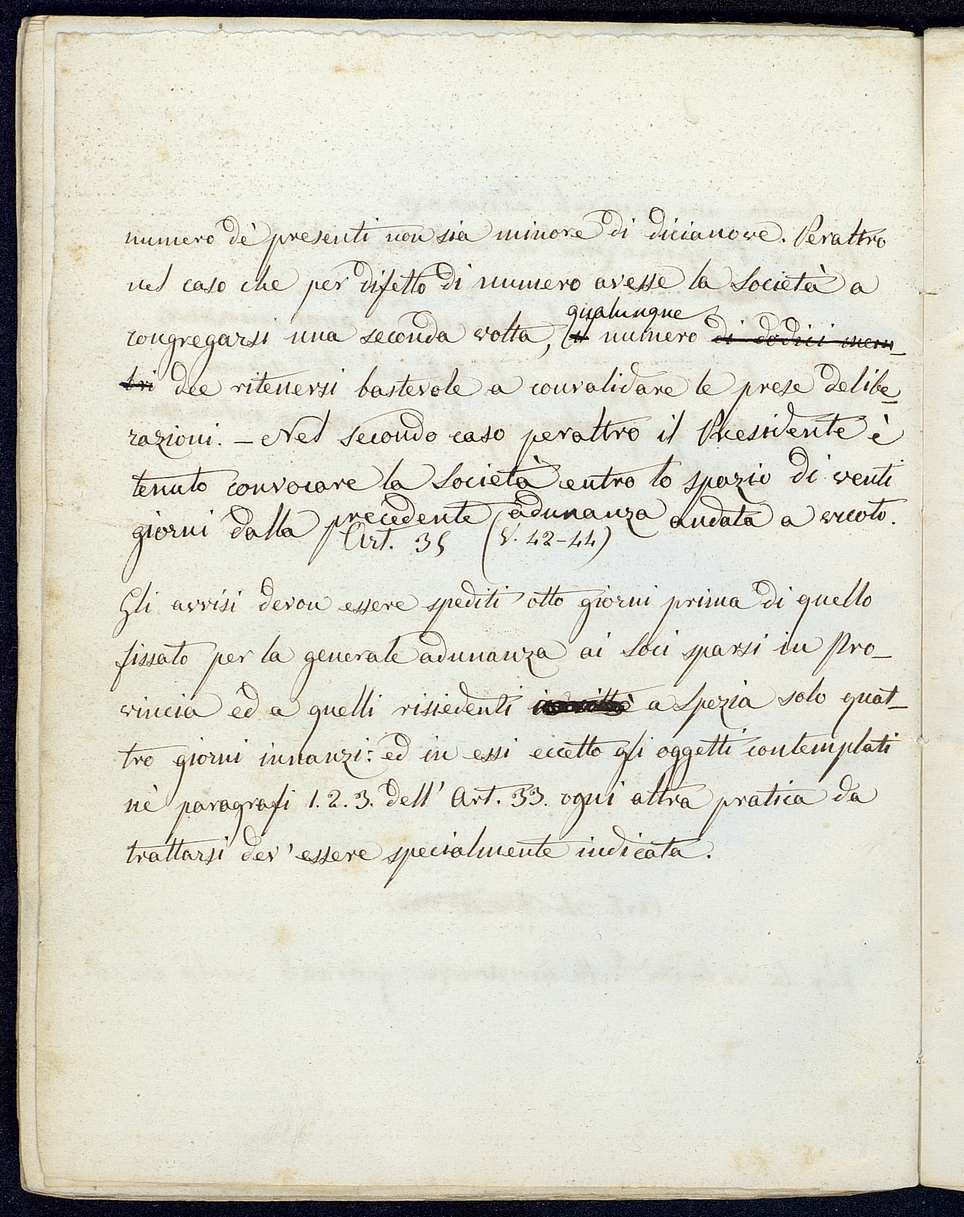 numero dè presenti non sia minore di dicianove. Perattro
nel caso che per difetto di numero avesse la Società a
qualunque
congregarsi una seconda volta, il numero di dodici mem_
bri dee ritenersi bastevole a convalidare le prese delibe_
razioni. _ Nel secondo caso perattro il Presidente è
tenuto convocare la Società entro lo spazio di venti
giorni dalla precedente adunanza andata a vuoto.
Art. 35 (V. 42-44)
Gli avvisi devon essere spediti otto giorni prima di quello
fissato per la generale adunanza ai Soci sparsi in Pro_
vincia ed a quelli risiedenti a Spezia solo quat_
tro giorni innanzi: ed in essi eccetto gli oggetti contemplati
nè paragrafi 1. 2. 3. dell' Art. 33. ogni altra pratica da
trattarsi dev' essere specialmente indicata.